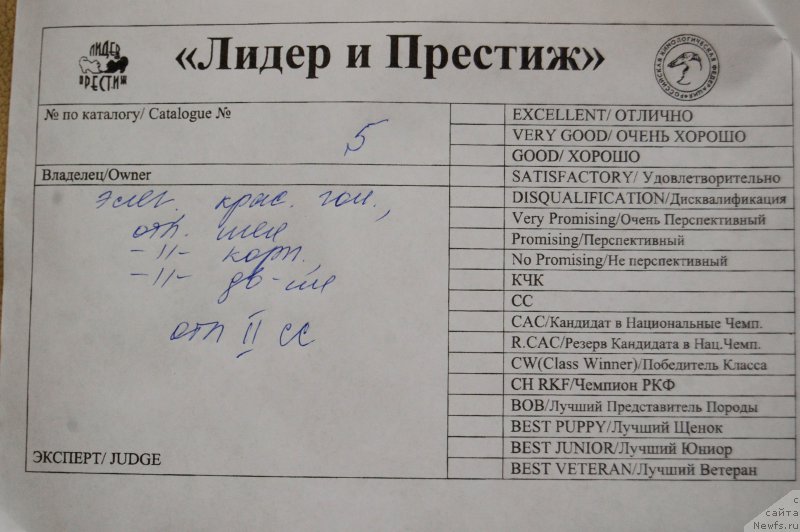 ЛИДЕР
ПРЕСТИЖ
«Лидер и Престиж»
РОССИЙСКАЯ КИНОЛОГИЧЕСКАЯ ФЕДЕРАЦИЯ
№ по каталогу/ Catalogue №
5
Владелец/Owner
элег. крас. гол.,
отл. шея
-"- корп.
-"- дв-ия
отл II СС
ЭКСПЕРТ/ JUDGE
EXCELLENT/ ОТЛИЧНО
VERY GOOD/ ОЧЕНЬ ХОРОШО
GOOD/ ХОРОШО
SATISFACTORY/ Удовлетворительно
DISQUALIFICATION/Дисквалификация
Very Promising/Очень Перспективный
Promising/Перспективный
No Promising/Не перспективный
КЧК
СС
CAC/Кандидат в Национальные Чемп.
R.CAC/Резерв Кандидата в Нац.Чемп.
CW(Class Winner)/Победитель Класса
CH RKF/Чемпион РКФ
BOB/Лучший Представитель Породы
BEST PUPPY/Лучший Щенок
BEST JUNIOR/Лучший Юниор
BEST VETERAN/Лучший Ветеран
с
сайта
Newfs.ru